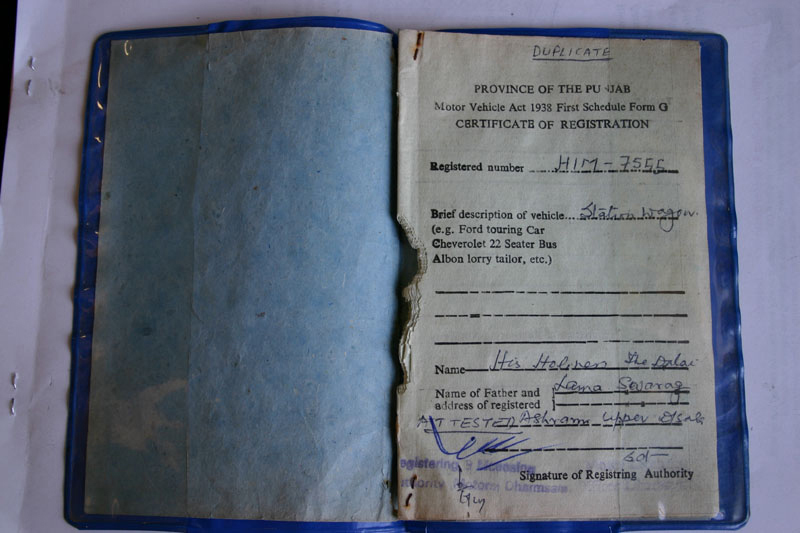 DUPLICATE
PROVINCE OF THE PUNJAB
Motor Vehicle Act 1938 First Schedule Form G
CERTIFICATE OF REGISTRATION
Registered number HIM-7555
Brief description of vehicle Station Wagon.
(e.g. Ford touring Car
Cheverolet 22 Seater Bus
Albon lorry tailor, etc.)
Name His Holiness The Dalai
Name of Father and Lama Swarag
address of registered
ATTESTED Ashram Upper D'sala
sd-
Signature of Registring Authority
egistering & Licensing
uthority Dharmsala